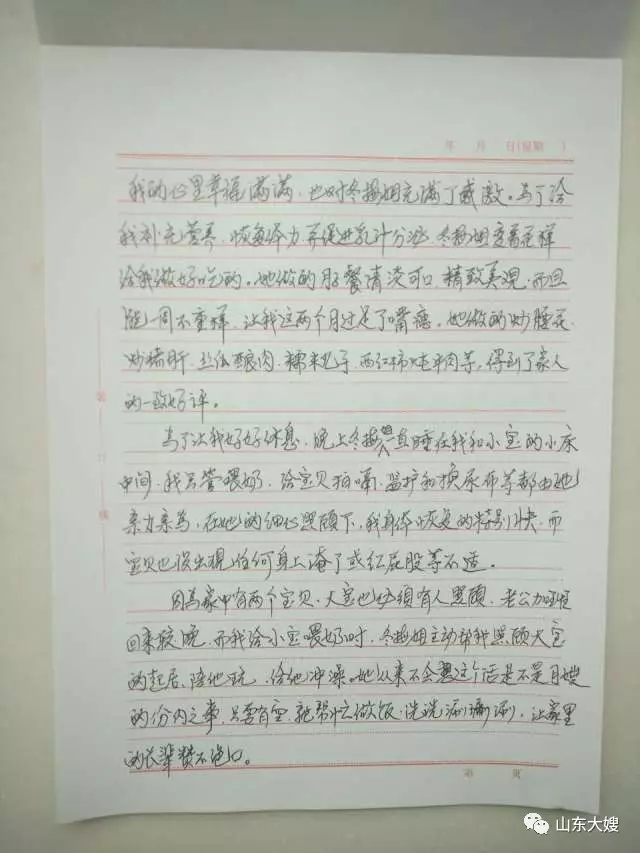 年 月 日(星期 )
我的心里幸福满满，也对冬梅姐充满了感激。为了给
我补充营养、恢复体力并促进乳汁分泌，冬梅姐变着花样
给我做好吃的。她做的月子餐清淡可口、精致美观，而且
能一周不重样，让我这两个月过足了嘴瘾。她做的炒腰花、
炒猪肝、丝瓜酿肉、糯米丸子、西红柿炖牛肉等，得到了家人
的一致好评。
为了让我好好休息，晚上冬梅姐一直睡在我和小宝的小床
中间，我只管喂奶，给宝贝拍嗝、监护和换尿布等都由她
亲力亲为，在她的细心照顾下，我身体恢复的特别快，而
宝贝也没出现任何身上淹了或红屁股等不适。
因为家中有两个宝贝，大宝也必须有人照顾，老公加班
回来较晚，而我给小宝喂奶时，冬梅姐主动帮我照顾大宝
的起居、陪他玩、给他冲澡。她从来不会想这个活是不是月嫂
的份内之事，只要有空，就帮忙做饭、洗洗涮涮，让家里
的长辈赞不绝口。
第 页
山东大嫂